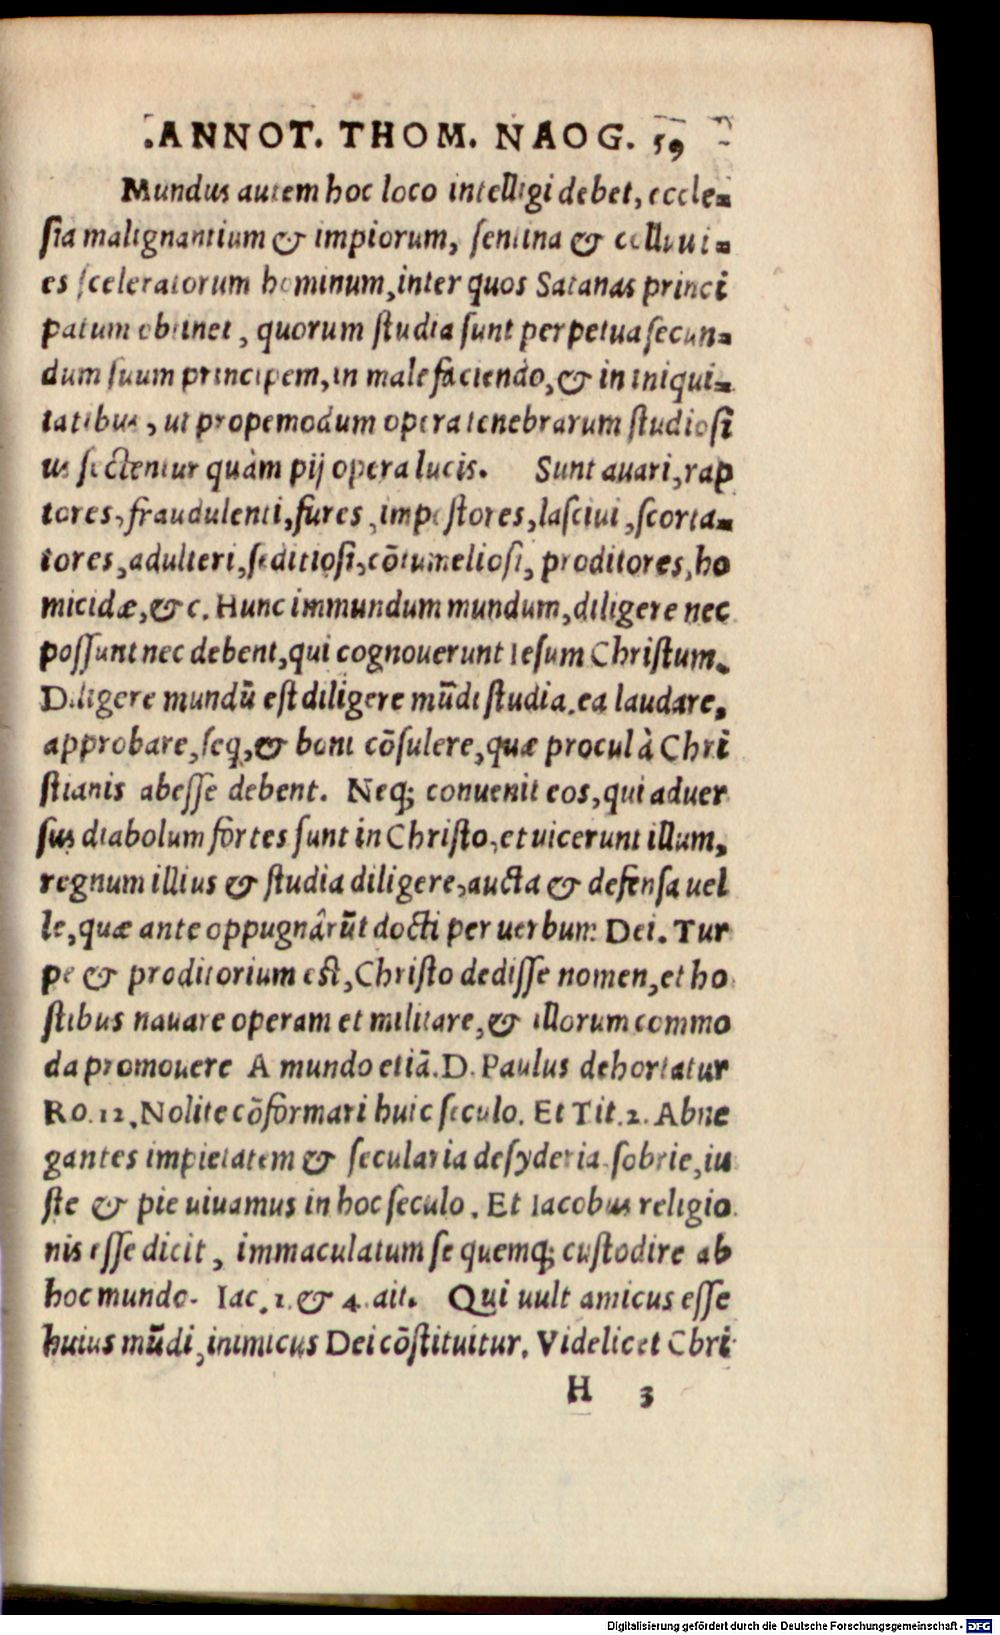 ANNOT. THOM. NAOG. 59
Mundus autem hoc loco intelligi debet, eccle-
sia malignantium & impiorum, sentina & colluui-
es sceleratorum hominum, inter quos Satanas princi
patum obtinet, quorum studia sunt perpetua secun-
dum suum principem, in male faciendo, & in iniqui-
tatibus, ut propemodum opera tenebrarum studiosi
us sectentur quàm pij opera lucis. Sunt auari, rap
tores, fraudulenti, fures, impostores, lasciui, scorta-
tores, adulteri, seditiosi, cōtumeliosi, proditores, ho
micidæ, &c. Hunc immundum mundum, diligere nec
possunt nec debent, qui cognouerunt Iesum Christum.
Diligere mundū est diligere mūdi studia, ea laudare,
approbare, seq, & boni cōsulere, quæ procul à Chri
stianis abesse debent. Neq; conuenit eos, qui aduer
sus diabolum fortes sunt in Christo, et uicerunt illum,
regnum illius & studia diligere, aucta & defensa uel
le, quæ ante oppugnârūt docti per uerbum Dei. Tur
pe & proditorium est, Christo dedisse nomen, et ho
stibus nauare operam et militare, & illorum commo
da promouere A mundo etiā. D. Paulus dehortatur
Ro. 12. Nolite cōformari huic seculo. Et Tit. 2. Abne
gantes impietatem & secularia desyderia sobrie, iu
ste & pie uiuamus in hoc seculo. Et Iacobus religio
nis esse dicit, immaculatum se quemq; custodire ab
hoc mundo. Iac. 1. & 4. ait. Qui uult amicus esse
huius mūdi, inimicus Dei cōstituitur. Videlicet Chri
H 3
Digitalisierung gefördert durch die Deutsche Forschungsgemeinschaft - DFG